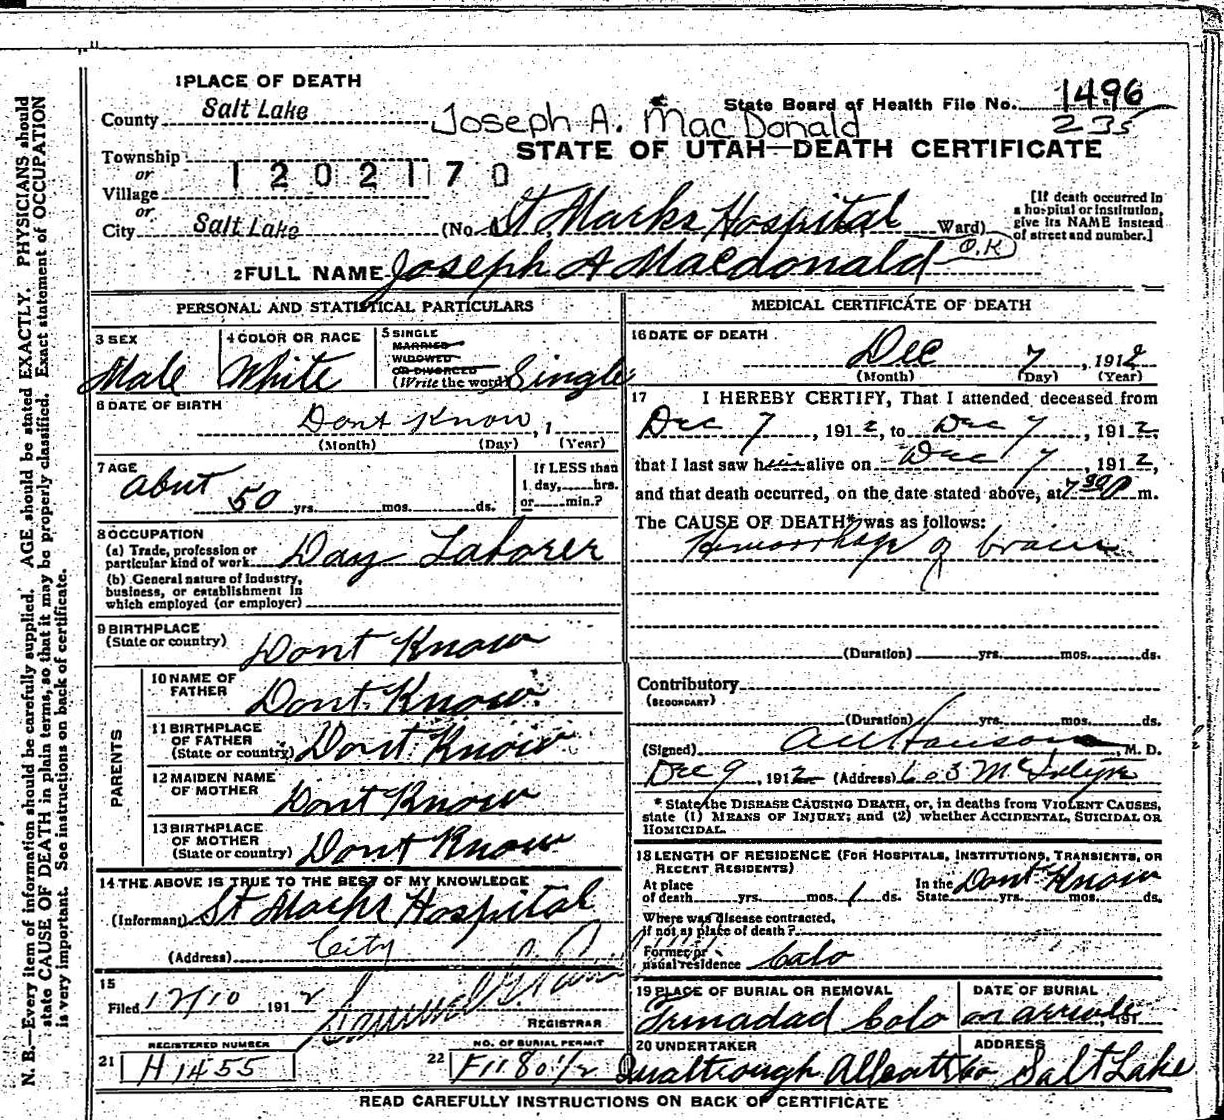 1 PLACE OF DEATH
County Salt Lake
Joseph A. MacDonald
State Board of Health File No. 1496
235
STATE OF UTAH—DEATH CERTIFICATE
Township
or
Village
1202170
or
City Salt Lake (No. St Marks Hospital Ward)
[If death occurred in
a hospital or institution,
give its NAME instead
of street and number.]
2 FULL NAME Joseph A Macdonald O.K
PERSONAL AND STATISTICAL PARTICULARS
3 SEX
Male
4 COLOR OR RACE
White
5 SINGLE
MARRIED
WIDOWED
OR DIVORCED
(Write the word) Single
6 DATE OF BIRTH
Dont Know, 1
(Month) (Day) (Year)
7 AGE
abut 50 yrs. mos. ds.
If LESS than
1 day, hrs.
or min.?
8 OCCUPATION
(a) Trade, profession or
particular kind of work Day Laborer
(b) General nature of industry,
business, or establishment in
which employed (or employer)
9 BIRTHPLACE
(State or country) Dont Know
PARENTS
10 NAME OF
FATHER Dont Know
11 BIRTHPLACE
OF FATHER
(State or country) Dont Know
12 MAIDEN NAME
OF MOTHER Dont Know
13 BIRTHPLACE
OF MOTHER
(State or country) Dont Know
14 THE ABOVE IS TRUE TO THE BEST OF MY KNOWLEDGE
(Informant) St Marks Hospital
(Address) City
15
Filed 12/10 1912
REGISTRAR
REGISTERED NUMBER
21 H1455
NO. OF BURIAL PERMIT
22 F1180 1/2
MEDICAL CERTIFICATE OF DEATH
16 DATE OF DEATH
Dec 7, 1912
(Month) (Day) (Year)
17 I HEREBY CERTIFY, That I attended deceased from
Dec 7, 1912, to Dec 7, 1912,
that I last saw him alive on Dec 7, 1912,
and that death occurred, on the date stated above, at 7 30 P m.
The CAUSE OF DEATH* was as follows:
Hemorrhage of brain
(Duration) yrs. mos. ds.
Contributory
(SECONDARY)
(Duration) yrs. mos. ds.
(Signed) M. D.
Dec 9, 1912 (Address) 603 McIntyre
* State the DISEASE CAUSING DEATH, or, in deaths from VIOLENT CAUSES,
state (1) MEANS OF INJURY; and (2) whether ACCIDENTAL, SUICIDAL OR
HOMICIDAL.
18 LENGTH OF RESIDENCE (FOR HOSPITALS, INSTITUTIONS, TRANSIENTS, OR
RECENT RESIDENTS)
At place
of death yrs. mos. 1 ds.
In the
State yrs. mos. ds. Dont Know
Where was disease contracted,
if not at place of death?
Former or
usual residence Colo
19 PLACE OF BURIAL OR REMOVAL
Trinadad Colo
DATE OF BURIAL
on arrival, 191
20 UNDERTAKER
ADDRESS
Salt Lake
READ CAREFULLY INSTRUCTIONS ON BACK OF CERTIFICATE
N. B.—Every item of information should be carefully supplied. AGE should be stated EXACTLY. PHYSICIANS should
state CAUSE OF DEATH in plain terms, so that it may be properly classified. Exact statement of OCCUPATION
is very important. See instructions on back of certificate.